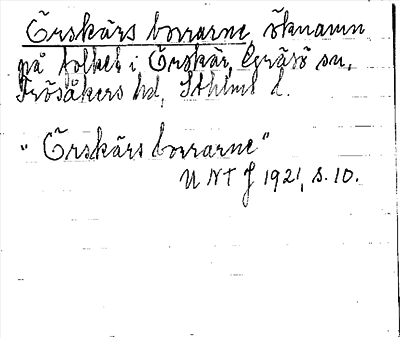 Örskärs borrarne, öknamn
på folket i Örskär, Gräsö sn,
Frösåkers hd, Sthlms l.
"Örskärs borrarne"
UNT J 1921, s. 10.